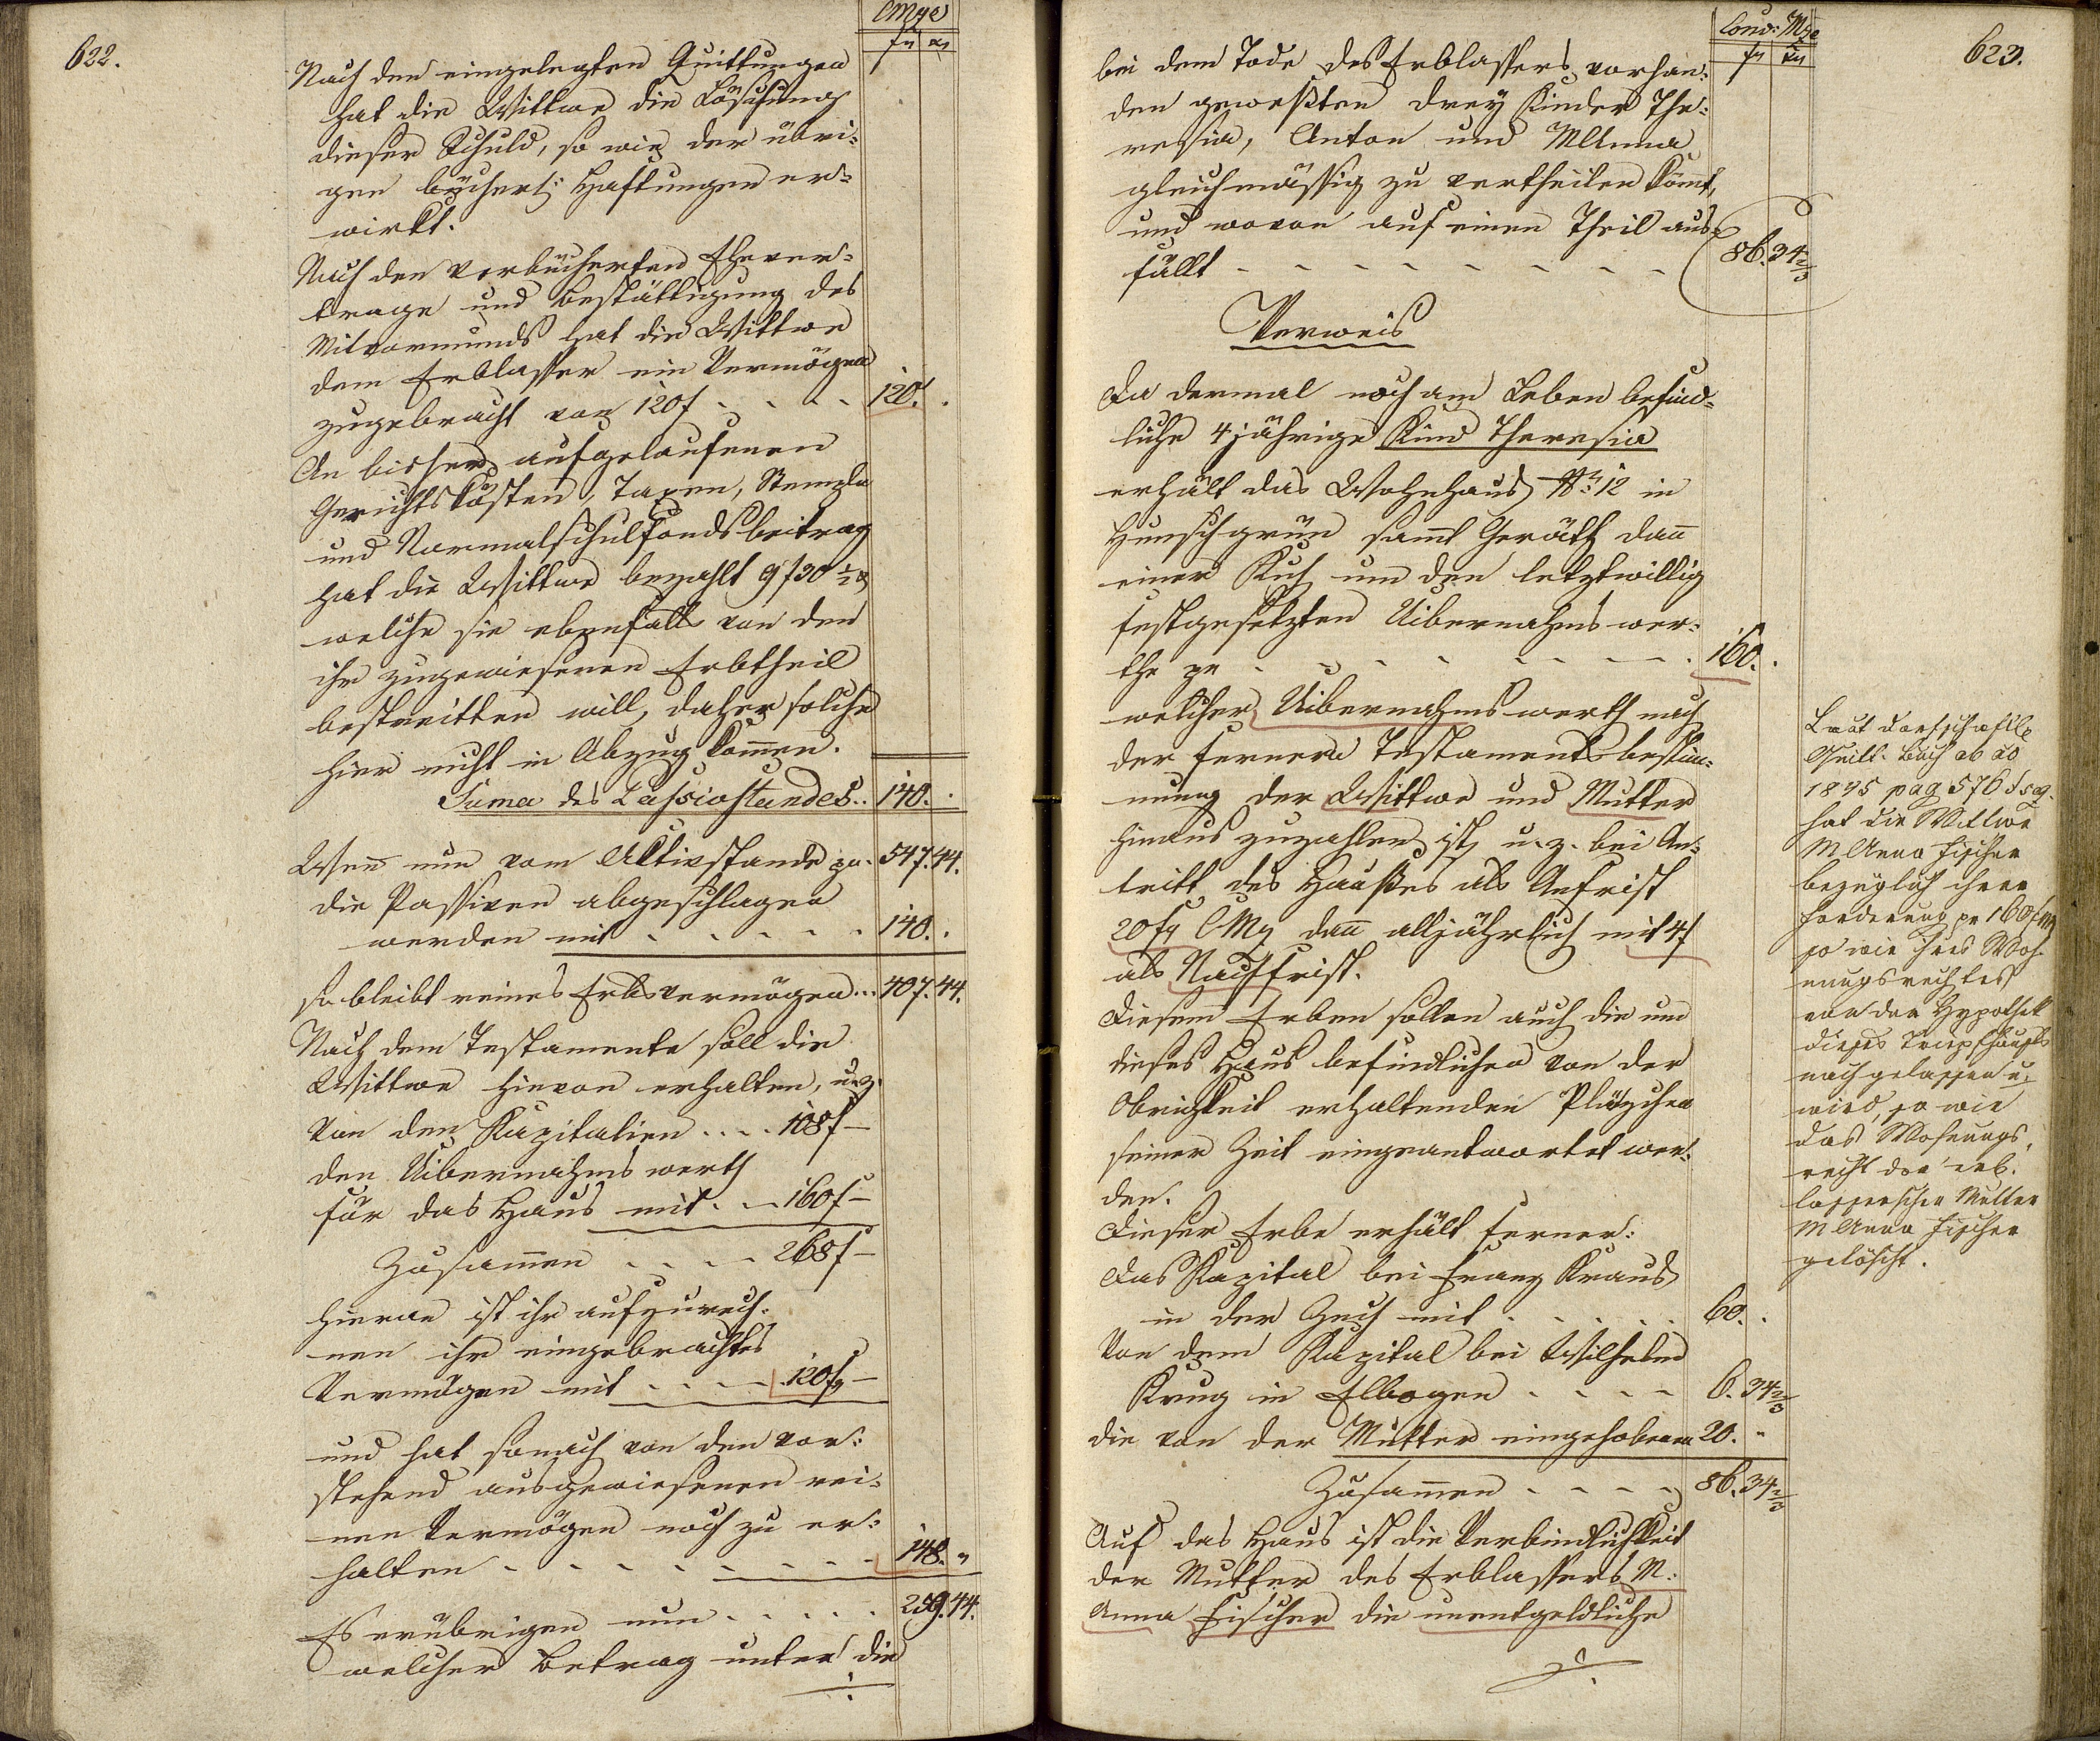 622.
CMze
fr xr
Nach den eingelegten Quittungen
hat die Wittwe die Löschung
dieser Schuld, so wie der übri-
gen bücherl: Haftungen er-
wirkt.
Nach den verbücherten Ehever-
trage und Bestättigung des
Mitvormunds hat die Wittwe
dem Erblasser ein Vermögen
zugebracht von 120 f - - - - 120. .
An bisher aufgelaufenen
Gerichtskösten, Taxen, Stempln
und Normalschulfondsbeitrag
hat die Wittwe bezahlt 9 f 30 1/2 xr
welche sie ebenfalls von den
ihr zugewiesenen Erbtheil
bestreitten will, daher solche
hier nicht in Abzug kommen.
Suma des Passivstandes.. 140. .
Wenn nun vom Aktivstande pr. 547. 44.
die Passiven abgeschlagen
werden mit - - - - - 140. .
so bleibt reines Erbsvermögen... 407. 44.
Nach dem Testamente soll die
Wittwe hievon erhalten, u. z.
Von den Kapitalien .... 108 f -
den Uibernahmswerth
für das Haus mit . - 160 f -
Zusammen . . . - 268 f -
hieran ist ihr aufzurech-
nen ihr eingebrachtes
Vermögen mit . - . - - 120 fr -
und hat sonach von den vor-
stehend ausgewiesenen rei-
nen Vermögen noch zu er-
halten - - - - - - - - - 148. "
Es erübrigen nun . - . . . 259. 44.
welcher Betrag unter die
./.
623.
Conv: Mze
fr xr
bei dem Tode des Erblassers vorhan-
den geweßten drey Kinder The-
resia, Anton und MAnna
gleichmässig zu vertheilen kömt,
und wovon auf einen Theil aus-
fällt - - - - - - - - - 86. 34 2/3
Verweis
Da dermal noch am Leben befind-
liche 4 jährige Kind Theresia
erhält das Wohnhaus No 12 in
Hunschgrün samt Geräth dann
einer Kuh um den letztwillig
festgesetzten Uibernahmswer-
the pr - - - - - - - - . 160. .
welcher Uibernahmswerth nach
der fernern Testamentsbestim-
mung der Wittwe und Mutter
hinaus zuzahlen ist, u. z. bei An-
tritt des Haußes als Anfrist
20 fr CMz dann alljährlich mit 4 f
als Nachfrist.
Diesem Erben sollen auch die um
dieses Haus befindlichen von der
Obrigkeit erhaltenden Pläzchen
seiner Zeit eingeantwortet wer-
den.
Dieser Erbe erhält ferner:
das Kapital bei Franz Kraus
in der Zech mit . . . . . 60. .
Von dem Kapital bei Wilhelm
Krug in Elbogen - - - - 6. 34 2/3
die von der Mutter eingehobenen 20. "
Zusammen - - - - 86. 34 2/3
Auf das Haus ist die Verbindlichkeit
der Mutter des Erblassers M:
Anna Fischer die unentgeldliche
./.
Laut dorfschaftl
Quitt. Buch ab ao
1835 pag 576 & seq.
hat die Wittwe
MAnna Fischer
bezüglich ihrer
Forderung pr 160 f
so wie ihres Woh-
nungsrechtes
von der Hypothek
dieses Tripfhauses
nachgelassen u.
wird, so wie
das Wohnungs-
recht der erb-
lasserischen Mutter
MAnna Fischer
gelöscht.